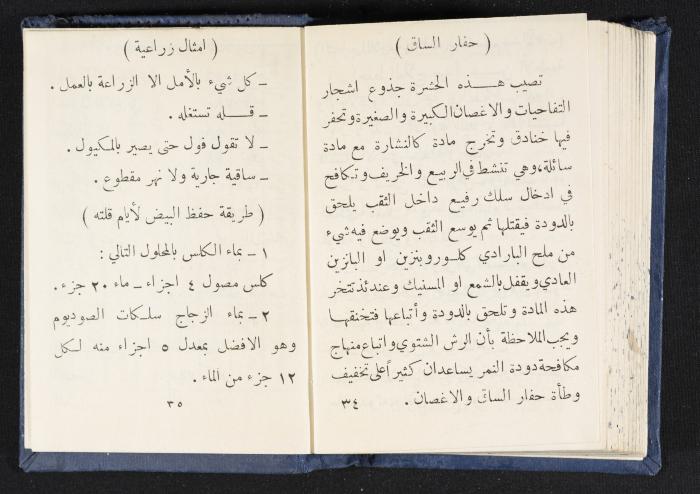 ( حفار الساق )
تصيب هذه الحشرة جذوع اشجار
التفاحيات والاغصان الكبيرة والصغيرة وتحفر
فيها خنادق وتخرج مادة كالنشارة مع مادة
سائلة، وهي تنشط في الربيع والخريف وتكافح
في ادخال سلك رفيع داخل الثقب يلحق
بالدودة فيقتلها ثم يوسع الثقب ويوضع فيه شيء
من ملح البارادي كلوروبنزين او البانزين
العادي ويقفل بالشمع او المستيك وعندئذ تتخر
هذه المادة وتلحق بالدودة وأتباعها فتخنقها
ويجب الملاحظة بأن الرش الشتوي واتباع منهاج
مكافحة دودة النمر يساعدان كثيراً على تخفيف
وطأة حفار الساق والاغصان .
٣٤
( امثال زراعية )
ـ كل شيء بالأمل الا الزراعة بالعمل .
ـ قله تستغله .
ـ لا تقول فول حتى يصير بالمكيول .
ـ ساقية جارية ولا نهر مقطوع .
( طريقة حفظ البيض لأيام قلته )
١ ـ بماء الكلس بالمحلول التالي :
كلس مصول ٤ اجزاء ـ ماء ٢٠ جزء .
٢ ـ بماء الزجاج سلكات الصوديوم
وهو الافضل بمعدل ٥ اجزاء منه لكل
١٢ جزء من الماء .
٣٥